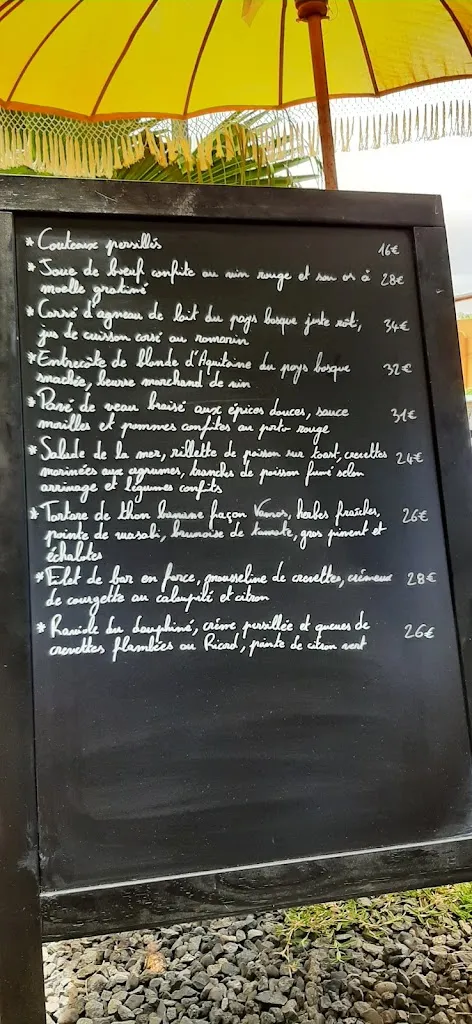 * Couteaux persillés 16€
* Joue de bœuf confite au vin rouge et son os à 28€
moelle gratiné
* Carré d'agneau de lait du pays basque juste rôti, 34€
jus de cuisson corsé au romarin
* Entrecôte de blonde d'Aquitaine du pays basque 32€
snackée, beurre marchand de vin
* Pavé de veau braisé aux épices douces, sauce 31€
morilles et pommes confites au porto rouge
* Salade de la mer, rillette de poisson sur toast, crevettes 24€
marinées aux agrumes, tranches de poisson fumé selon
arrivage et légumes confits
* Tartare de thon banane façon Vamos, herbes fraîches, 26€
pointe de wasabi, brunoise de tomate, gros piment et
échalotes
* Filet de bar en farce, mousseline de crevettes, crémeux 28€
de courgette au et citron
* Raviole du dauphiné, crème persillée et queues de 26€
crevettes flambées au Ricard, pointe de citron vert